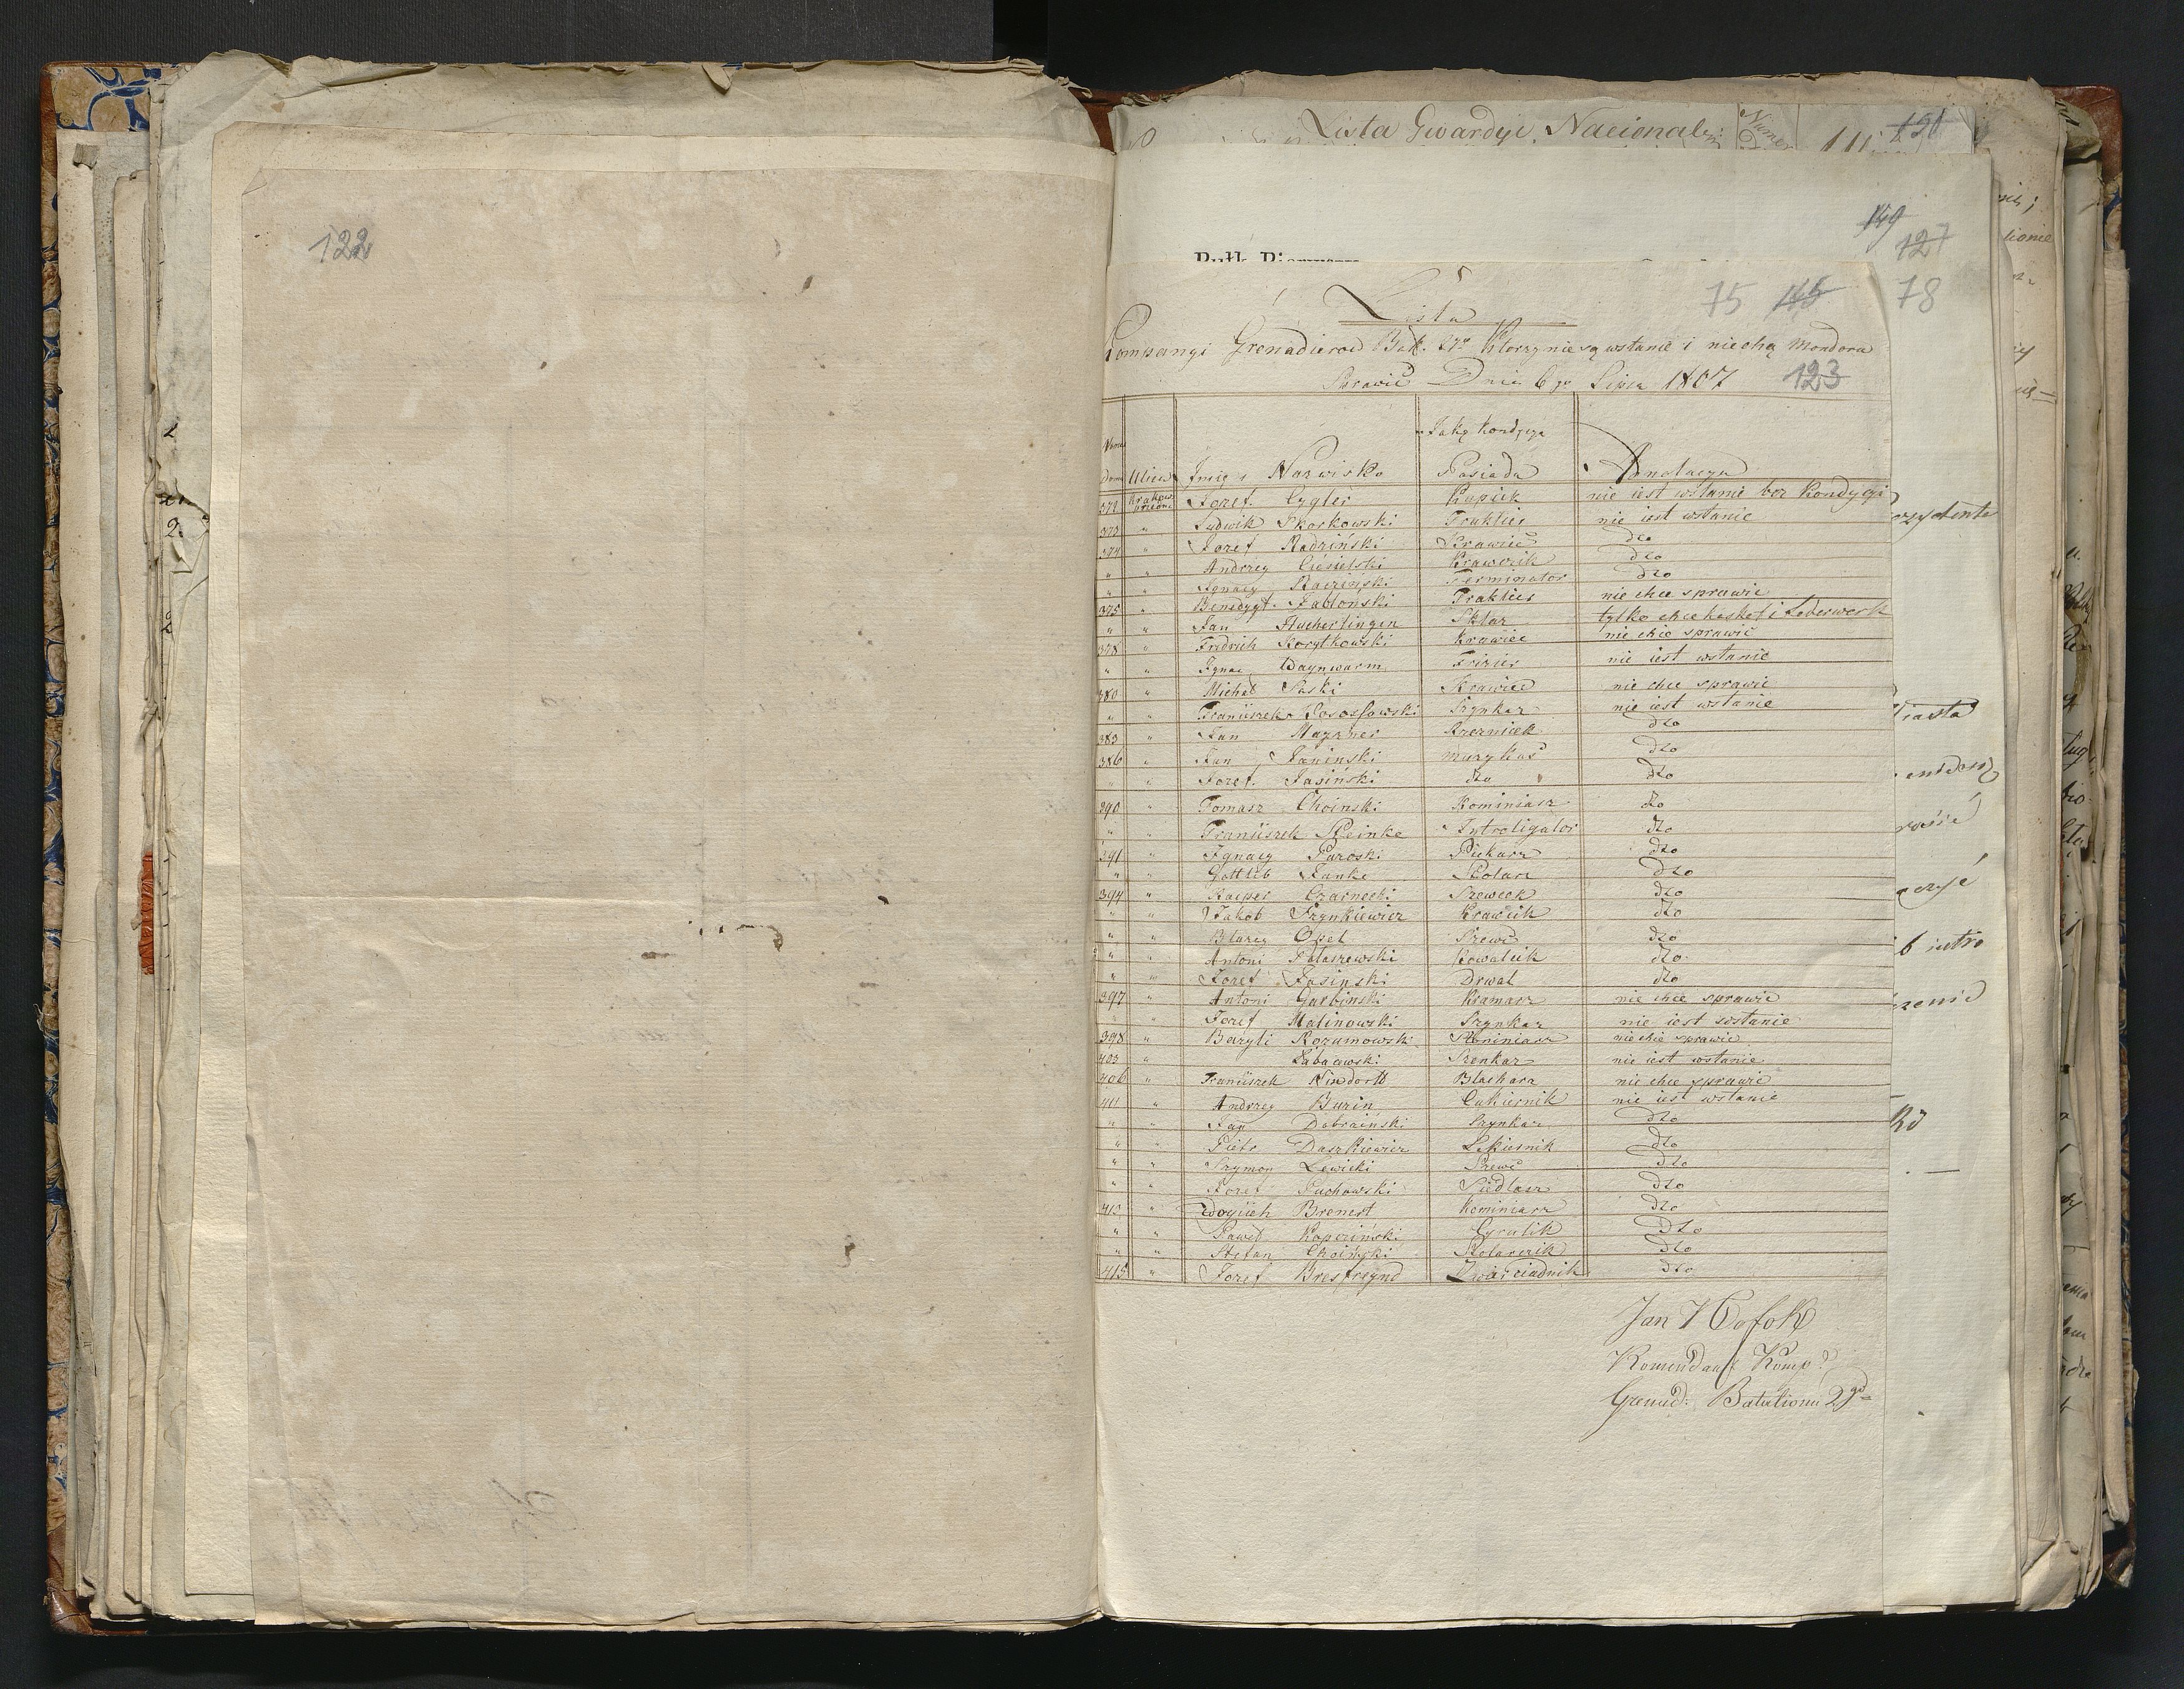 122
Lista Gwardyi Nacionalney
150
149
127
78
Pułk Pierwszy
75 145
Lista
Kompangi Grenadierow Bat. 2go Ktorzy nie są wstanie i niechą Mondora
Sprawić Dnia 6go Lipca 1807
123
Numer Domu Ulica Jmię i Nazwisko Jaką Kondycyą Posiada Anotacya
372 Krakow. Przedm. Jozef Cygler Kupiek nie iest wstanie bez Kondycyi
373 " Ludwik Skorkowski Traktier nie iest wstanie
374 " Jozef Radziński Krawiec dto
" " Andrzey Ciesielski Krawczik dto
" " Jgnacy Raczynski Terminator dto
375 " Benedygt Jabłoński Traktier nie chce sprawić
" " Jan Sklarz tylko chce kasket i Lederwerk
378 " Fridrich Korytkowski Krawiec nie chce sprawić
" " Jgnac Waynwarm Frizier nie iest wstanie
380 " Michał Paski Krawiec nie chce sprawić
" " Franciszek Kossossowski Szynkarz nie iest wstanie
383 " Jan Mayzner Rzeznick dto
386 " Jan Janinski Muzykus dto
" " Jozef Jasiński dto dto
390 " Tomasz Choinski Kominiarz dto
" " Franciszek Steinke Introligator dto
391 " Jgnacy Paroski Piekarz dto
" " Gottlib Janke Stolarz dto
394 " Kacper Czarnecki Szewcek dto
" " Jakob Szynkiewicz Krawcik dto
" " Blazey Opel Szewc dto
" " Antoni Pałaszewski Kowalcik dto
" " Jozef Jasinski Drwal dto
397 " Antoni Garbinski Kramarz nie chce sprawić
" " Jozef Malinowski Szynkarz nie iest wstanie
398 " Bazyli Rozumowski nie chce sprawić
403 " Szenkarz nie iest wstanie
406 " Franciszek Nindorff Blacharz nie chce sprawić
411 " Andrzey Burin Cukiernik nie iest wstanie
" " Jan Dobraiński Szynkarz dto
" " Piotr Daszkiewicz dto
" " Szymon Lewicki Szewc dto
" " Jozef Puchowski Siedlarz dto
413 " Woyciech Brenert Kominiarz dto
" " Paweł Kopciński Cyrulik dto
" " Stefan Choiński Stolarczik dto
415 " Jozef Bresfreynd Zwierciadnik dto
Komendant Komp.
Grenad: Batalionu 2go